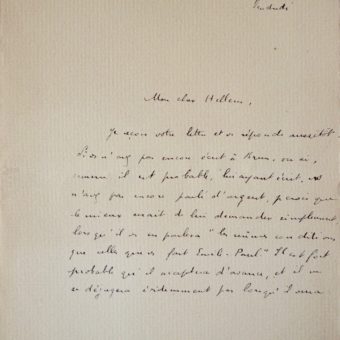 Vendredi
Mon cher Hellens,
Je reçois votre lettre et vs réponds aussitôt.
Si vs n'avez pas encore écrit à Krin, ou si,
comme il est probable, lui ayant écrit, vs
n'avez pas encore parlé d'argent, je crois que
le mieux serait de lui demander simplement
lorsqu'il vs en parlera "les mêmes conditions
que celles que vs fait Emile-Paul". Il est fort
probable qu'il acceptera d'avance, et il ne
se dégagera évidemment pas lorsqu'il aura